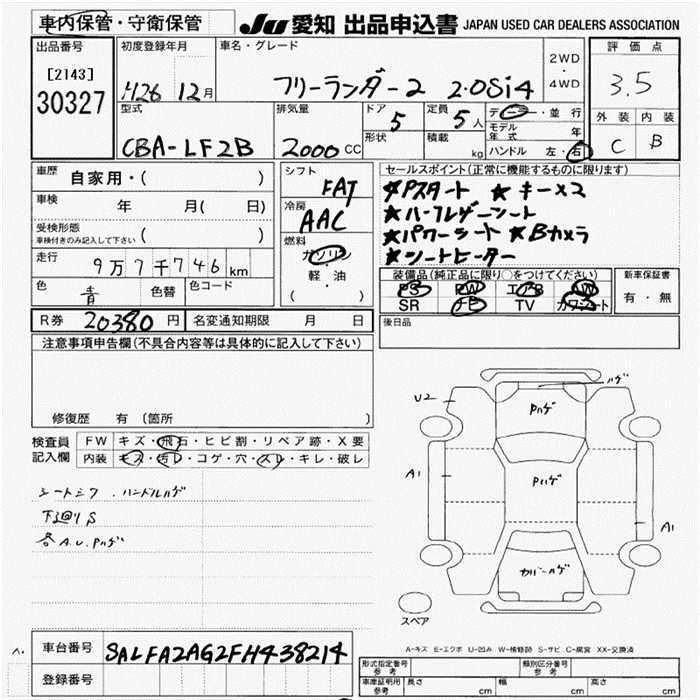 車内保管・守衛保管 JU 愛知 出品申込書 JAPAN USED CAR DEALERS ASSOCIATION
出品番号 初度登録年月 車名・グレード 2WD・4WD 評価点
[2143] 30327 H26 12月 フリーランダー2 2.0Si4 3.5
型式 排気量 ドア 5 定員 5人 ディーラー・並行 外装 内装
CBA-LF2B 2000 CC 形状 積載 kg モデル年式 年 C B
ハンドル 左・右
車歴 自家用・( ) シフト FAT セールスポイント(正常に機能するものに限ります)
車検 年 月( 日) 冷房 AAC #Pスタート ★キー×2
受検形態 ( ) ★ハーフレザーシート
車検付きのみ記入して下さい 燃料 ガソリン ★パワーシート ★Bカメラ
走行 9万7千746km 軽・油 ★シートヒーター
( ) 装備品(純正品に限り○をつけてください) 新車保証書
色 青 色替 色コード PS PW エアB AW 有・無
SR ナビ TV カワシート
R券 20380円 名変通知期限 月 日 後日品
注意事項申告欄(不具合内容等は具体的に記入して下さい)
修復歴 有 (箇所 )
検査員記入欄 FW キズ・飛石・ヒビ割・リペア跡・X要
内装 キズ・汚レ・コゲ・穴・スレ・キレ・破レ
シートシワ.ハンドルハゲ
下廻りS
各A.U.Pハゲ
U2 ハゲ
Pハゲ
A1 Pハゲ
A1
カバーハゲ
スペア
A-キズ E-エクボ U-凹み W-補修跡 S-サビ C-腐食 XX-交換済
車台番号 SALFA2AG2FH438214
登録番号
形式指定番号 参考 類別区分番号 参考
車庫証明用 参考 長さ cm 幅 cm 高さ cm